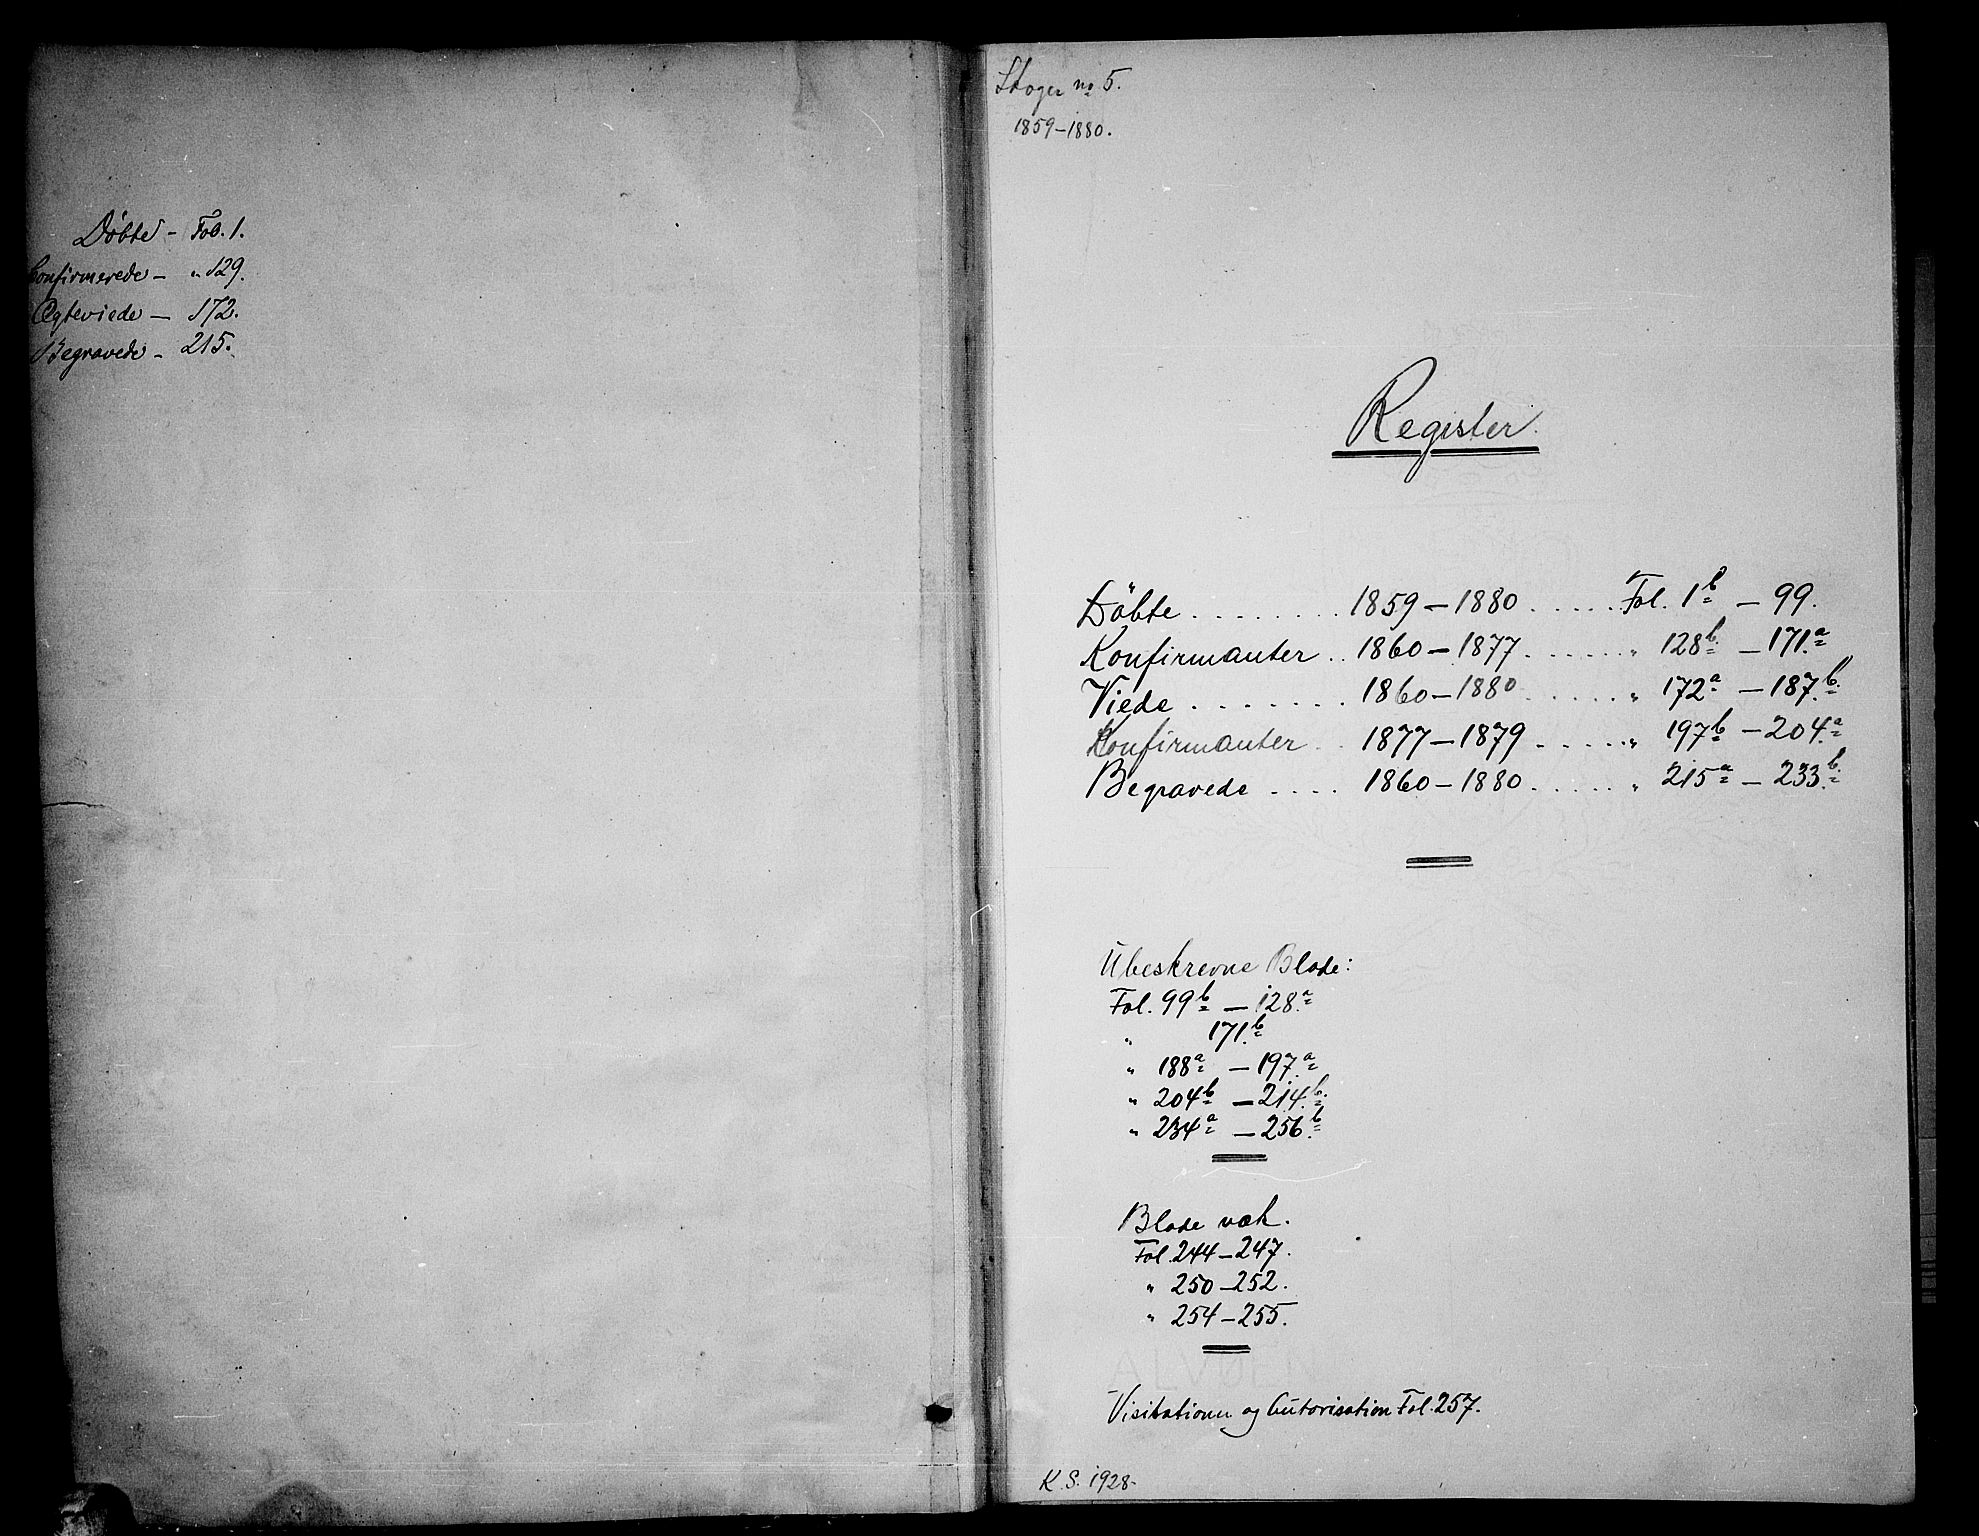 Döbte - Fol. 1.
Confirmerede - " 129.
Ægteviede - 172.
Begravede - 215.
Skoger no 5.
1859-1880.
Register.
Döbte ........ 1859-1880 ..... Fol. 1b - 99.
Konfirmanter .. 1860-1877 ...... " 128b - 171a
Viede ....... 1860-1880 ...... " 172a - 187b.
Konfirmanter .. 1877-1879 ...... " 197b - 204a
Begravede .... 1860-1880 ...... " 215a - 233b.
Ubeskrevne Blade:
Fol. 99b - 128a
" 171b
" 188a - 197a
" 204b - 214b.
" 234a - 256b
Blade væk.
Fol. 244-247.
" 250-252.
" 254-255.
ALVØEN
Visitationer og Autorisation Fol. 257.
K. S. 1928.